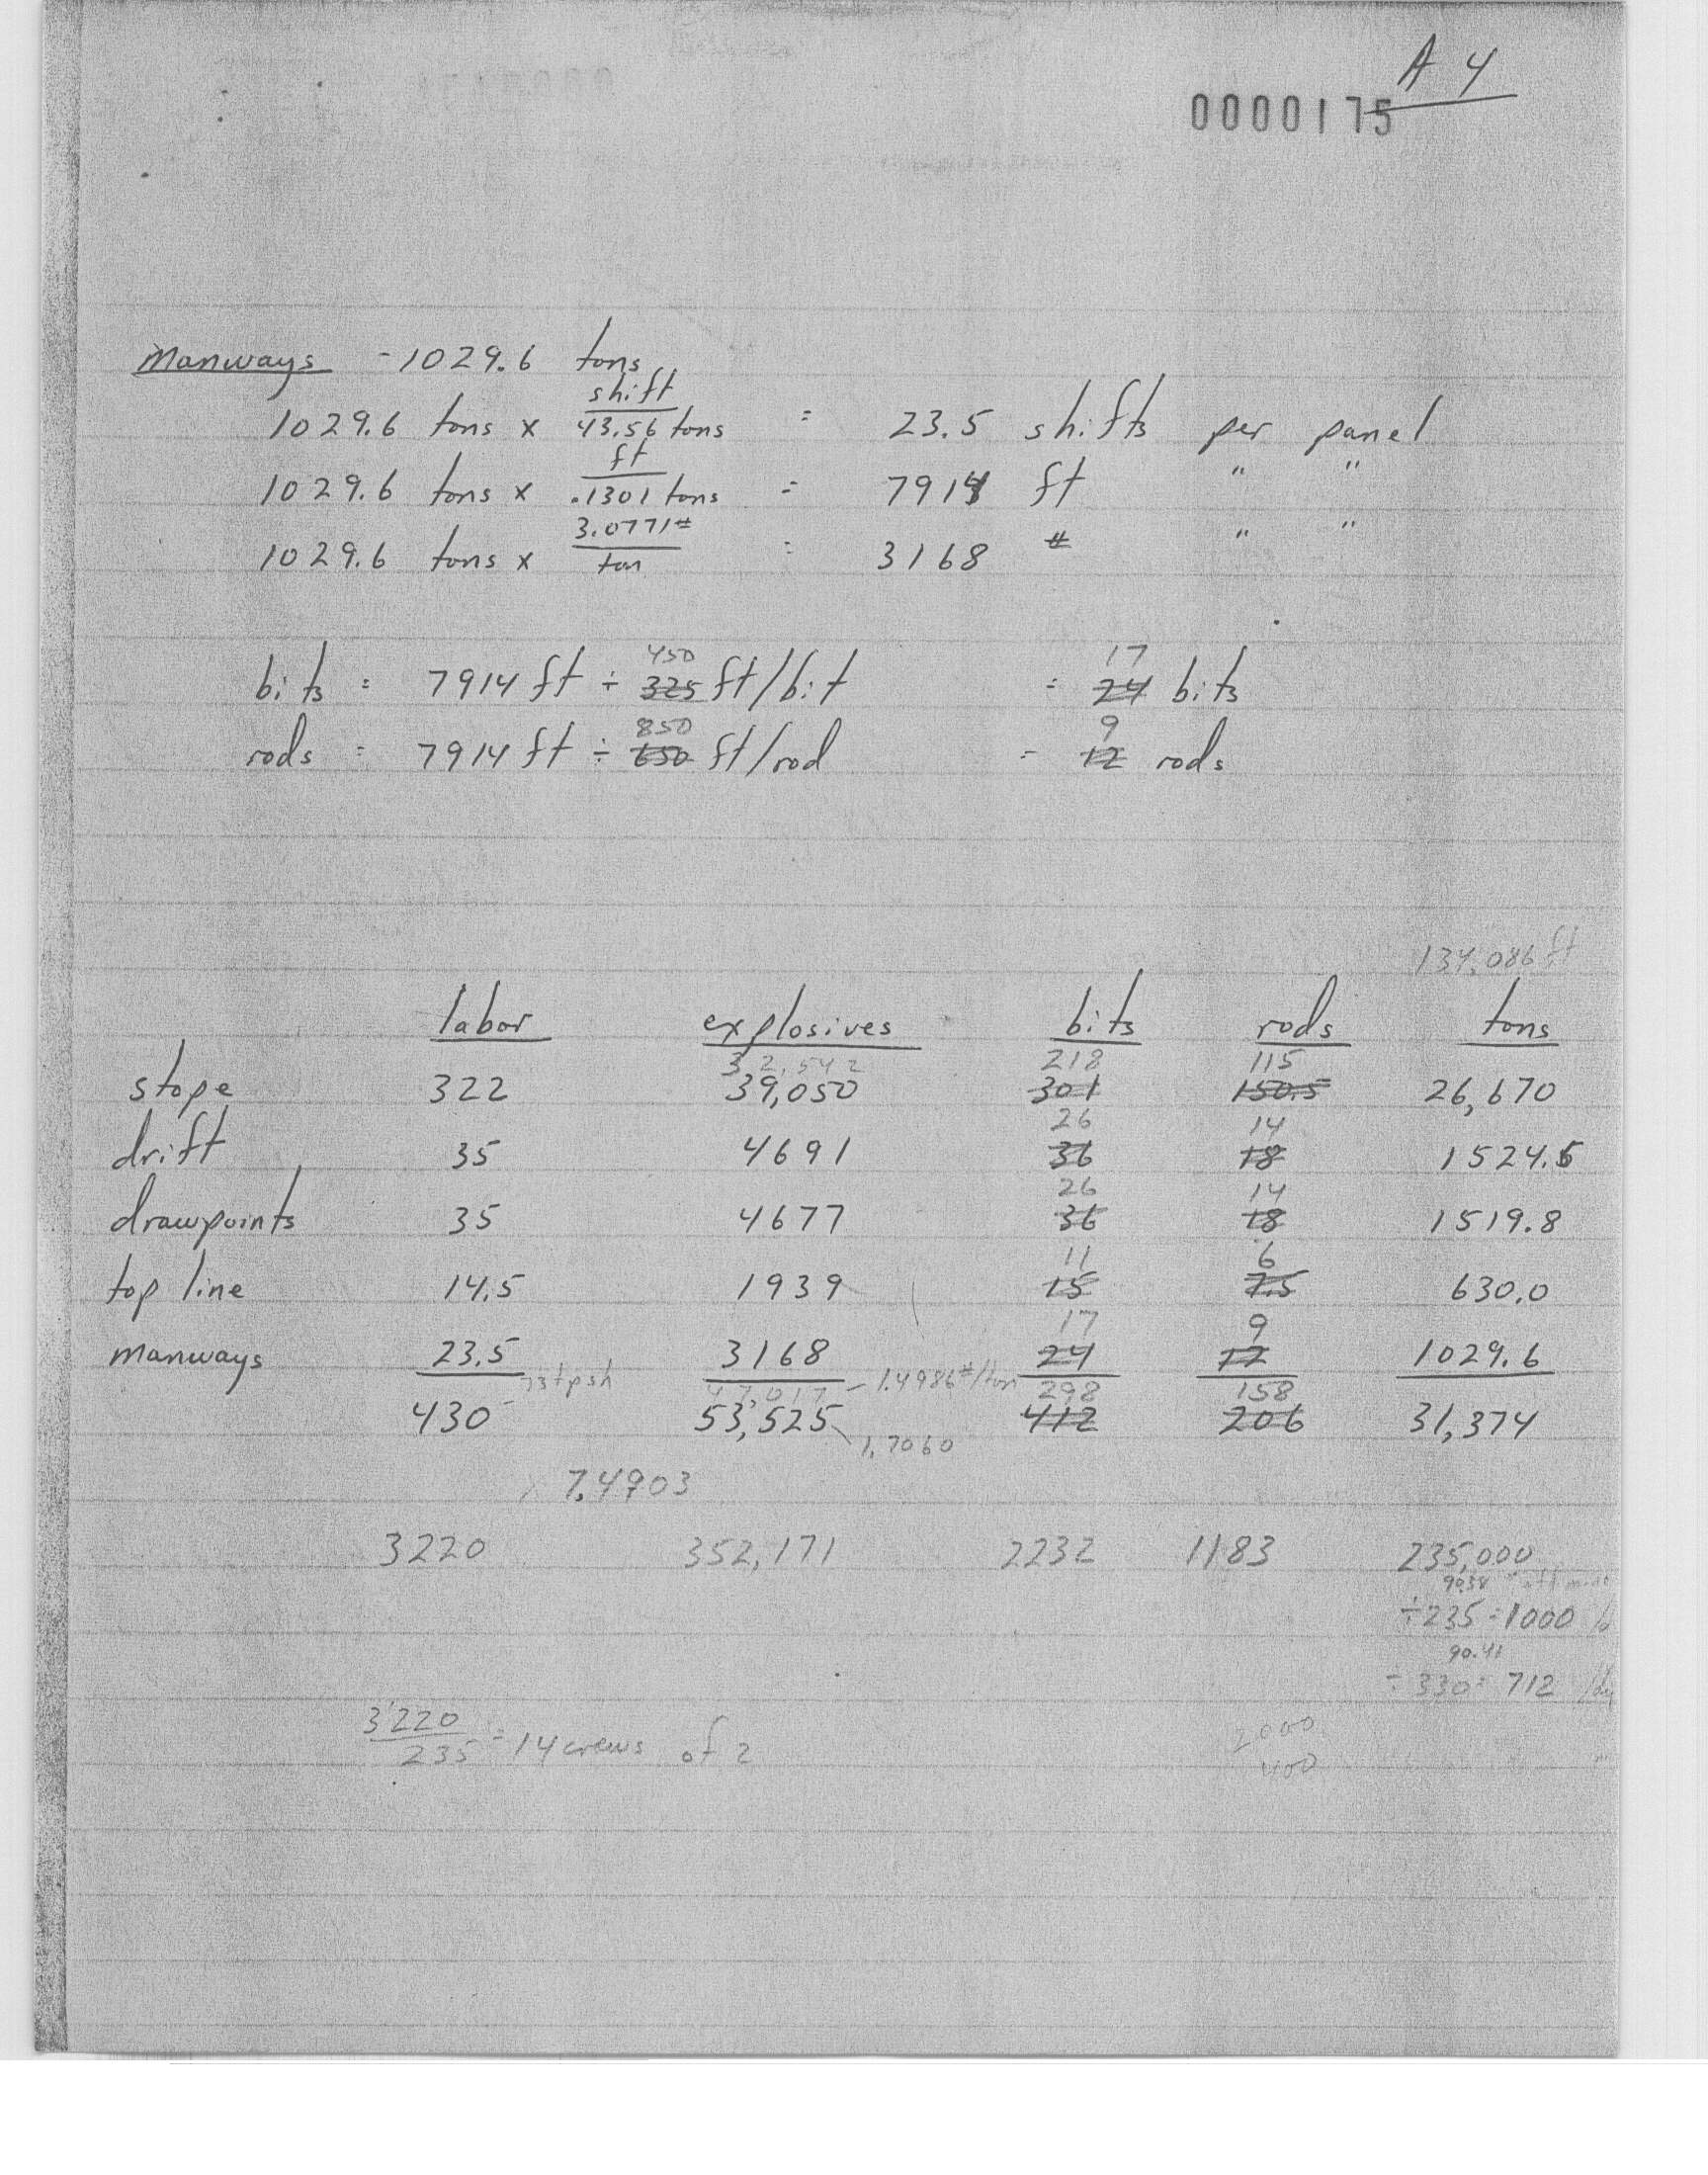 A 4
0000175
Manways - 1029.6 tons
1029.6 tons x shift / 43.56 tons = 23.5 shifts per panel
1029.6 tons x ft / .1301 tons = 7914 ft " "
1029.6 tons x 3.0771# / ton = 3168 # " "
450 17
bits = 7914 ft ÷ 325 ft/bit = 24 bits
850 9
rods = 7914 ft ÷ 650 ft/rod = 12 rods
134,086 ft
labor explosives bits rods tons
32,542 218 115
stope 322 39,050 301 150.5 26,670
26 14
drift 35 4691 36 18 1524.5
26 14
drawpoints 35 4677 36 18 1519.8
11 6
top line 14.5 1939 15 7.5 630.0
17 9
manways 23.5 3168 24 12 1029.6
73 tpsh 47,017 - 1.4986#/ton 298 158
430 53,525 412 206 31,374
1.7060
x 7.4903
3220 352,171 2232 1183 235,000
90.38
÷ 235 = 1000
90.41
÷ 330 = 712 /day
3220 / 235 = 14 crews of 2
2000
400